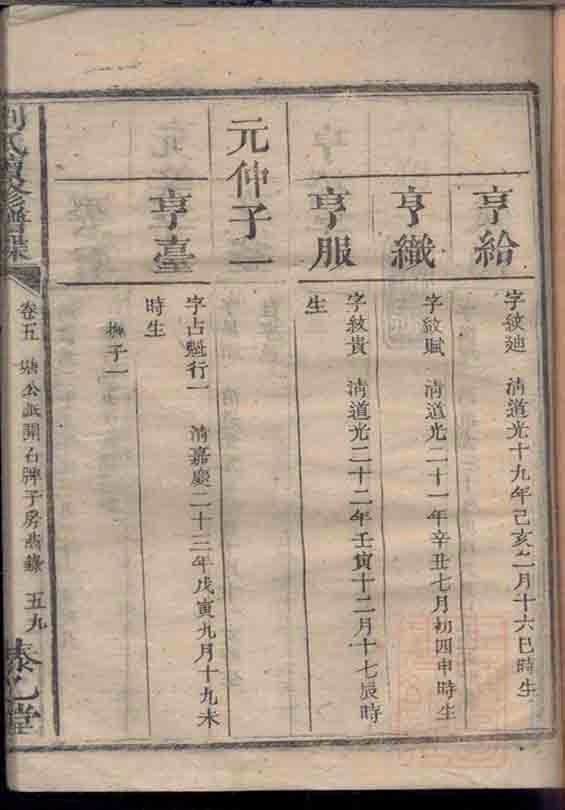 亨給
字紋迪 清道光十九年己亥二月十六巳時生
亨織
字紋賦 清道光二十一年辛丑七月初四申時生
亨服
字紋貴 清道光二十二年壬寅十二月十七辰時
生
元仲子一
亨臺
字占魁行一 清嘉慶二十三年戊寅九月十九未
時生
撫子一
氏譜
卷五 公派開石牌子房 錄 五九
泰乙堂